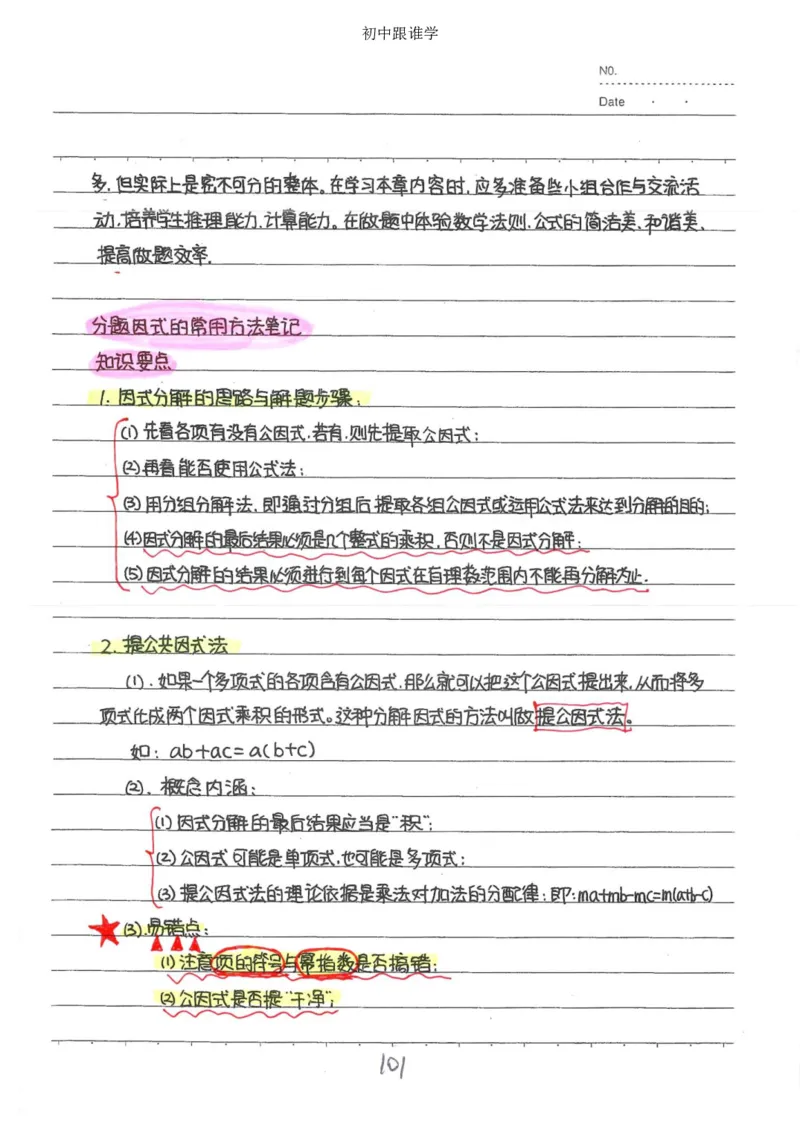 初中跟谁学
NO.
Date
多,但实际上是密不可分的整体。在学习本章内容时,应多准备些小组合作与交流活
动,培养学生推理能力,计算能力。在做题中体验数学法则,公式的简洁美、和谐美、
提高做题效率.
分题因式的常用方法笔记
知识要点
1. 因式分解的思路与解题步骤:
(1) 先看各项有没有公因式,若有,则先提取公因式;
(2) 再看能否使用公式法;
(3) 用分组分解法,即通过分组后提取各组公因式或运用公式法来达到分解的目的;
(4) 因式分解的最后结果必须是几个整式的乘积,否则不是因式分解;
(5) 因式分解的结果必须进行到每个因式在有理数范围内不能再分解为止.
2. 提公共因式法
(1). 如果一个多项式的各项含有公因式,那么就可以把这个公因式提出来,从而将多
项式化成两个因式乘积的形式。这种分解因式的方法叫做提公因式法。
如: ab+ac=a(b+c)
(2). 概念内涵:
(1) 因式分解的最后结果应当是"积";
(2) 公因式可能是单项式,也可能是多项式;
(3) 提公因式法的理论依据是乘法对加法的分配律:即:ma+mb-mc=m(a+b-c)
(3). 易错点:
(1) 注意项的符号与幂指数是否搞错;
(2) 公因式是否提"干净";
101